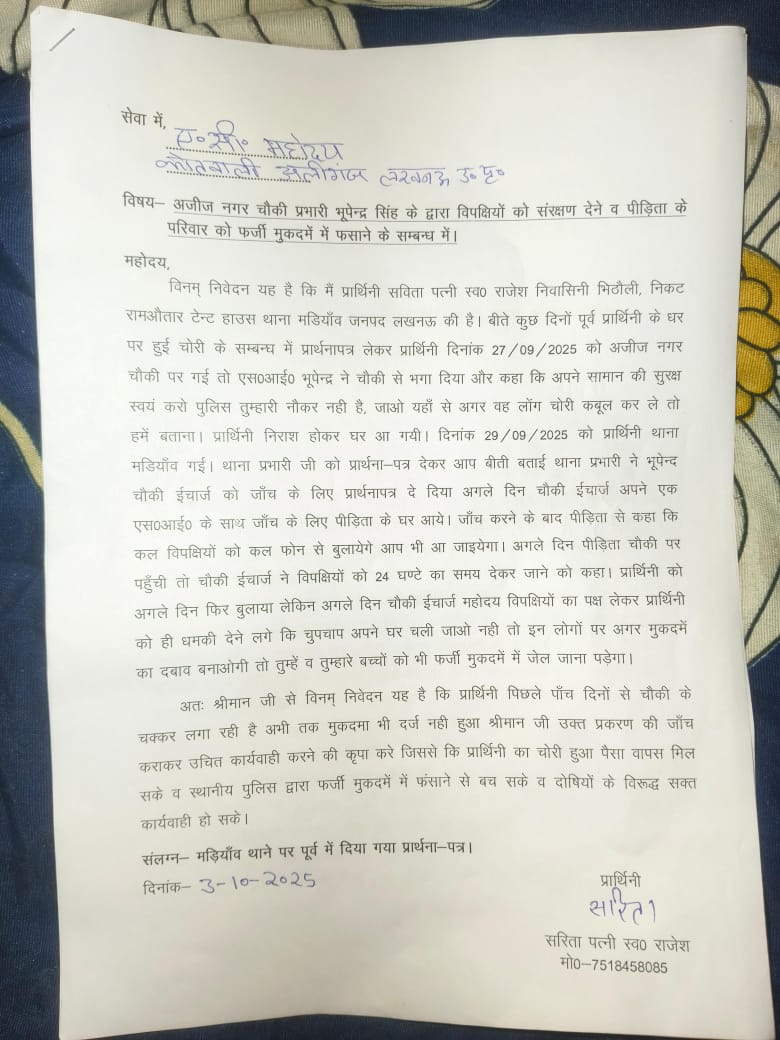 सेवा में,
ए०सी० महोदय
कोतवाली अलीगंज लखनऊ उ०प्र०
विषय– अजीज नगर चौकी प्रभारी भूपेन्द्र सिंह के द्वारा विपक्षियों को संरक्षण देने व पीड़िता के
परिवार को फर्जी मुकदमें में फसाने के सम्बन्ध में।
महोदय,
विनम् निवेदन यह है कि मैं प्रार्थिनी सविता पत्नी स्व0 राजेश निवासिनी भिठौली, निकट
रामऔतार टेन्ट हाउस थाना मडियाँव जनपद लखनऊ की है। बीते कुछ दिनों पूर्व प्रार्थिनी के धर
पर हुई चोरी के सम्बन्ध में प्रार्थनापत्र लेकर प्रार्थिनी दिनांक 27/09/2025 को अजीज नगर
चौकी पर गई तो एस0आई0 भूपेन्द्र ने चौकी से भगा दिया और कहा कि अपने सामान की सुरक्ष
स्वयं करो पुलिस तुम्हारी नौकर नही है, जाओ यहाँ से अगर वह लोंग चोरी कबूल कर ले तो
हमें बताना। प्रार्थिनी निराश होकर घर आ गयी। दिनांक 29/09/2025 को प्रार्थिनी थाना
मडियाँव गई। थाना प्रभारी जी को प्रार्थना–पत्र देकर आप बीती बताई थाना प्रभारी ने भूपेन्द
चौकी ईचार्ज को जाँच के लिए प्रार्थनापत्र दे दिया अगले दिन चौकी ईचार्ज अपने एक
एस0आई0 के साथ जाँच के लिए पीड़िता के घर आये। जाँच करने के बाद पीड़िता से कहा कि
कल विपक्षियों को कल फोन से बुलायेगे आप भी आ जाइयेगा। अगले दिन पीड़िता चौकी पर
पहुँची तो चौकी ईचार्ज ने विपक्षियों को 24 घण्टे का समय देकर जाने को कहा। प्रार्थिनी को
अगले दिन फिर बुलाया लेकिन अगले दिन चौकी ईचार्ज महोदय विपक्षियों का पक्ष लेकर प्रार्थिनी
को ही धमकी देने लगे कि चुपचाप अपने घर चली जाओ नही तो इन लोगों पर अगर मुकदमें
का दबाव बनाओगी तो तुम्हें व तुम्हारे बच्चों को भी फर्जी मुकदमें में जेल जाना पड़ेगा।
अतः श्रीमान जी से विनम् निवेदन यह है कि प्रार्थिनी पिछले पाँच दिनों से चौकी के
चक्कर लगा रही है अभी तक मुकदमा भी दर्ज नही हुआ श्रीमान जी उक्त प्रकरण की जाँच
कराकर उचित कार्यवाही करने की कृपा करे जिससे कि प्रार्थिनी का चोरी हुआ पैसा वापस मिल
सके व स्थानीय पुलिस द्वारा फर्जी मुकदमें में फंसाने से बच सके व दोषियों के विरूद्ध सक्त
कार्यवाही हो सके।
संलग्न– मड़ियाँव थाने पर पूर्व में दिया गया प्रार्थना–पत्र।
दिनांक– 3-10-2025
प्रार्थिनी
सरिता
सरिता पत्नी स्व0 राजेश
मो0–7518458085